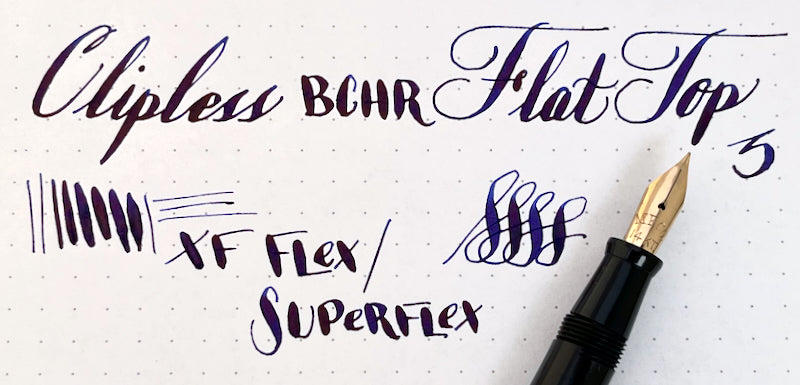 Clipless BCHR Flat Top
5
XF FLex/
SUPeRFLex